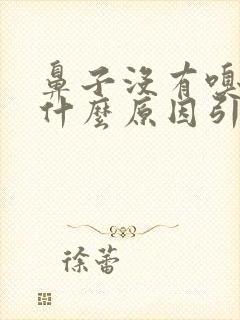 鼻子没有嗅
什麼原因引
徐蕾